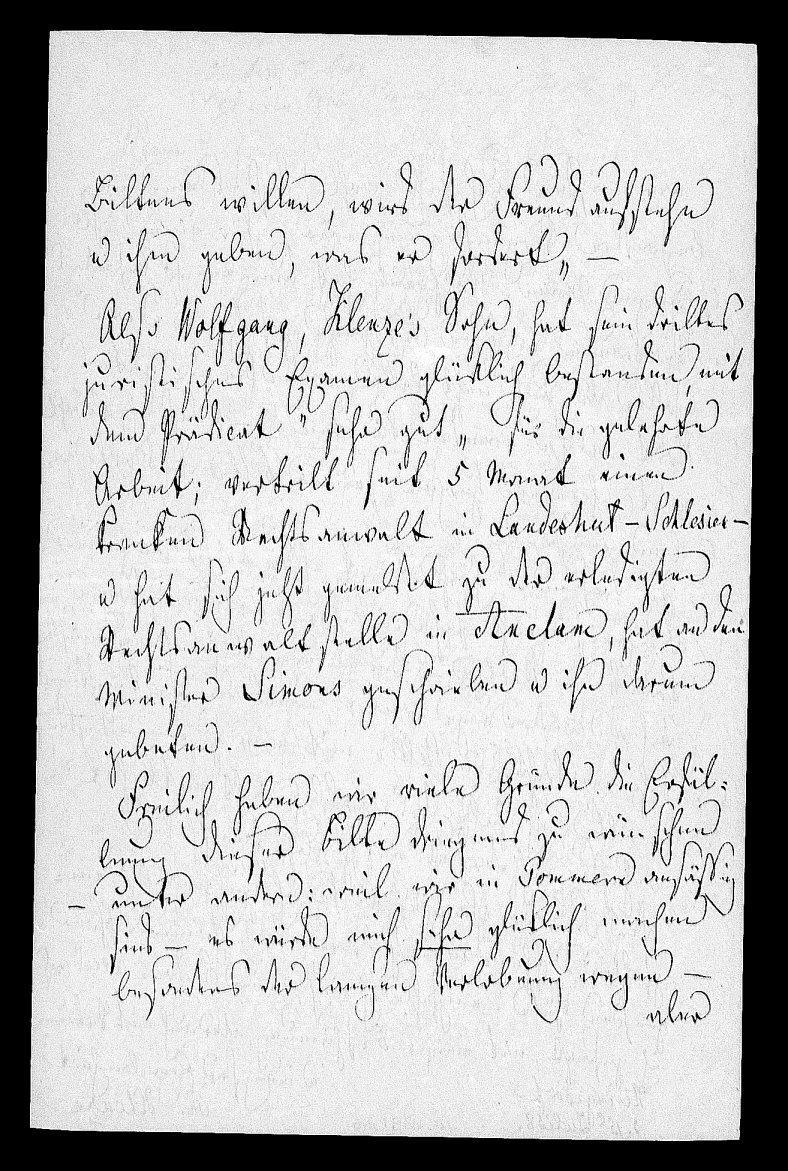 Bittens willen, wird der Freund aufstehn
u ihm geben, was er fordert„ —
Also Wolfgang, Klenze's Sohn, hat sein drittes
juristisches Examen glücklich bestanden, mit
dem Prädicat "sehr gut„ für die gelehrte
Arbeit; vertritt seit 5 Monat einen
kranken Rechtsanwalt in Landeshut – Schlesien –
u hat sich jetzt gemeldet zu der erledigten
Rechtsanwaltstelle in Anclam, hat an den
Minister Simons geschrieben u ihn darum
gebeten. —
Freilich haben wir viele Gründe die Erfül-
lung dieser Bitte dringend zu wünschen
– unter andern: weil wir in Pommern ansässig
sind — es würde mich sehr glücklich machen
besonders der langen Verlobung wegen —
aber